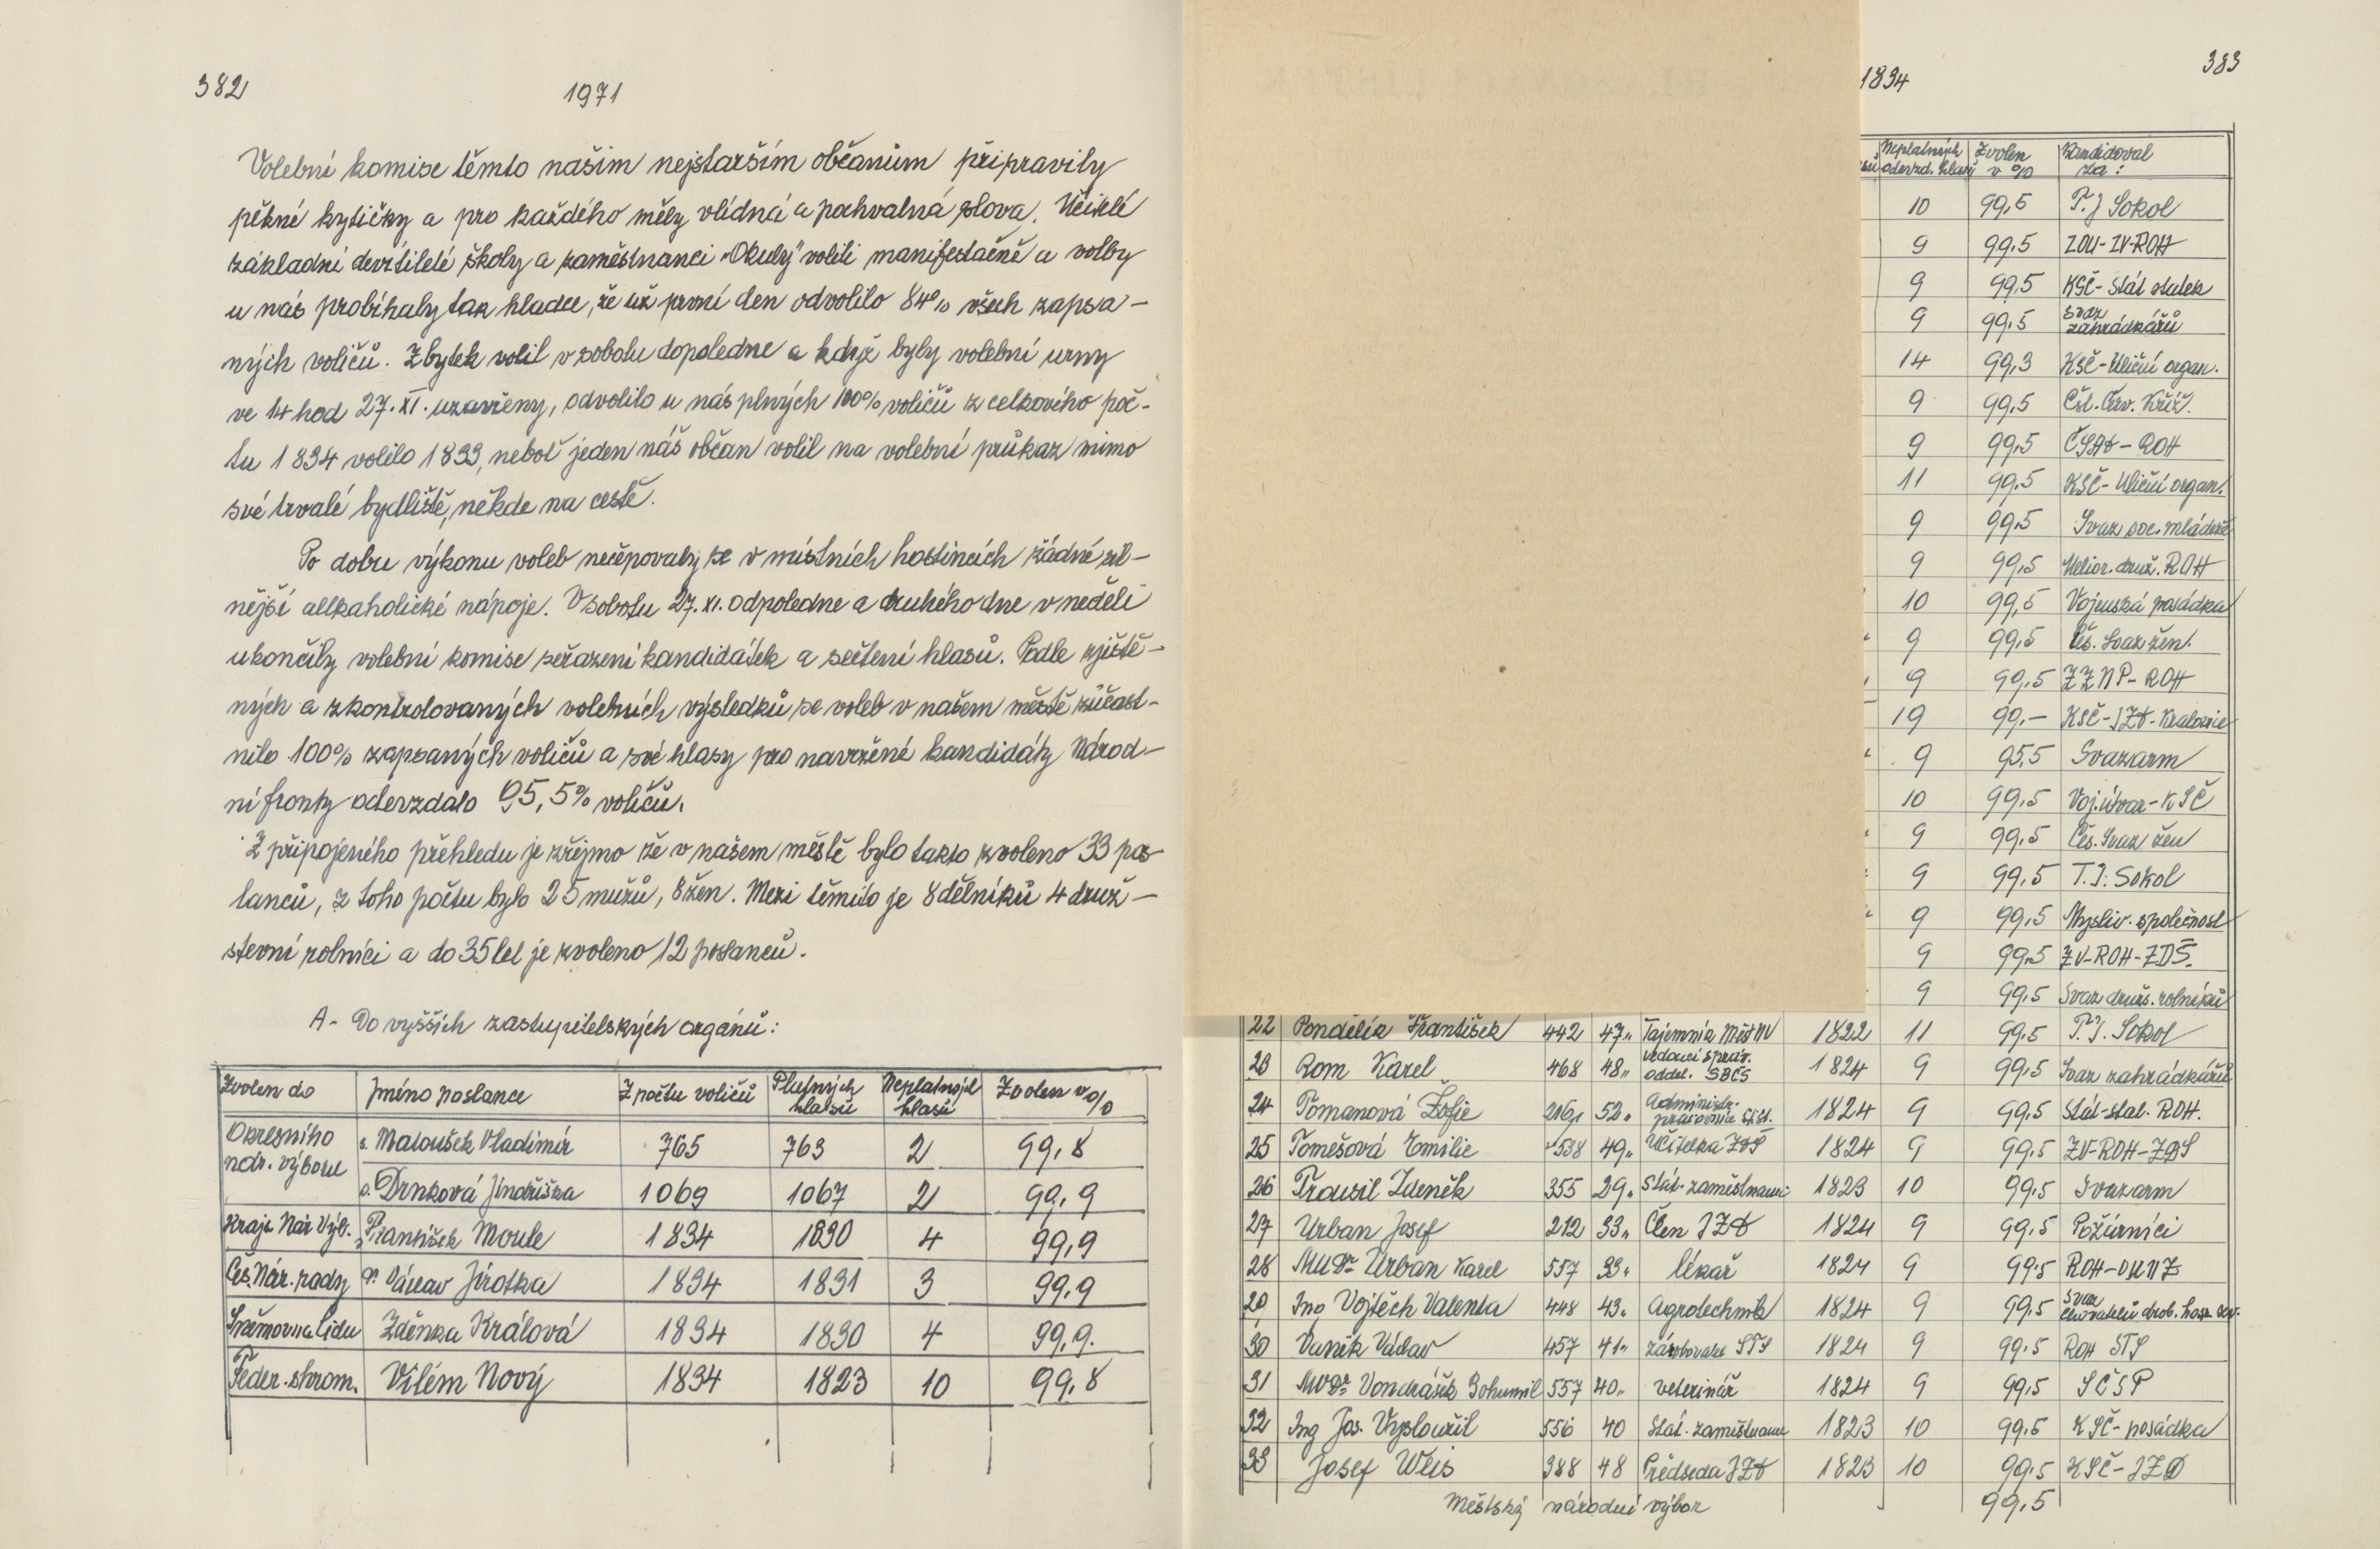 382
1971
Volební komise těmto našim nejstarším občanům připravily
pěkné kytičky a pro každého měly vlídná a pochvalná slova. Učitelé
základní devítileté školy a zaměstnanci „Okuly" volili manifestačně a volby
u nás probíhaly tak hladce, že už první den odvolilo 84% všech zapsa-
ných voličů. Zbytek volil v sobotu dopoledne a když byly volební urny
ve 14 hod 27. XI. uzavřeny, odvolilo u nás plných 100% voličů z celkového poč-
tu 1834 volilo 1833, neboť jeden náš občan volil na volební průkaz mimo
své trvalé bydliště, někde na cestě.
Po dobu výkonu voleb nečepovaly se v místních hostincích žádné sil-
nější allkaholické nápoje. V sobotu 27. XI. odpoledne a druhého dne v neděli
ukončily volební komise seřazení kandidátek a sečtení hlasů. Podle zjiště-
ných a zkontrolovaných volebních výsledků se voleb v našem městě zúčast-
nilo 100% zapsaných voličů a své hlasy pro navržené kandidáty Národ-
ní fronty odevzdalo 95,5% voličů.
Z připojeného přehledu je zřejmo že v našem městě bylo takto zvoleno 33 pos-
lanců, z toho počtu bylo 25 mužů, 8 žen. Mezi těmito je 8 dělníků 4 druž-
stevní rolníci a do 35 let je zvoleno 12 poslanců.
A- Do vyšších zastupitelských orgánů:
Zvolen do Jméno poslance Z počtu voličů Platných hlasů Neplatných hlasů Zvolen v %
Okresního nár. výboru s. Matoušek Vladimír 765 763 2 99,8
s. Drnková Jindřiška 1069 1067 2 99,9
Kraj. Nár Výb. František Moule 1834 1830 4 99,9
Čes. Nár. rady Václav Jirotka 1834 1831 3 99,9
Sněmovna lidu Zdenka Králová 1834 1830 4 99,9.
Feder. shrom. Vilém Nový 1834 1823 10 99,8
1834
383
Neplatných odevzd. hlasů Zvolen v % Kandidoval za:
10 99,5 T.J Sokol
9 99.5 ZOU-ZV-ROH
9 99,5 KSČ- Stát statek
9 99,5 Svaz zahrádkářů
14 99,3 KSČ-Uliční organ.
9 99,5 Čsl. Červ. Kříž.
9 99,5 ČSAD - ROH
11 99,5 KSČ- Uliční organ.
9 99,5 Svaz soc. mládeže
9 99,5 Melior. druž. ROH
10 99,5 Vojenská posádka
9 99.5 Čes. Svaz žen.
9 99,5 ZZNP- ROH
19 99,- KSČ-JZD-Kralovice
9 95,5 Svazarm
10 99,5 Voj. útvar-KSČ
9 99.5 Čes. Svaz žen
9 99,5 T.J: Sokol
9 99,5 Mysliv. společnost
9 99,5 ZV-ROH-ZDŠ.
9 99,5 Svaz druž. rolníků
22 Pondělík František 442 47" Tajemník MěstNV 1822 11 99,5 T.J. Sokol
23 Rom Karel 468 48" vedoucí správ. oddel. SBČS 1824 9 99,5 Svaz zahrádkářů
24 Tomanová Žofie 52" 1824 9 99,5 Stát-stat. ROH.
25 Tomešová Emilie 538 49" Učitelka ZDŠ 1824 9 99,5 ZV-ROH-ZDŠ
26 Trousil Zdeněk 355 29" Stát. zaměstnanec 1823 10 99,5 Svazarm
27 Urban Josef 212 33" Člen JZD 1824 9 99,5 Požárníci
28 MUDr Urban Karel 557 33" lékař 1824 9 99,5 ROH-OUNZ
29 Ing Vojtěch Valenta 448 43" Agrotechnik 1824 9 99,5 Svaz chovatelů drob. hosp. zv.
30 Vaněk Václav 457 41" STS 1824 9 99,5 ROH STS
31 MVDr Vondrášek Bohumil 557 40" veterinář 1824 9 99,5 SČSP
32 Ing Jos. Vysloužil 556 40 Stát. zaměstnanec 1823 10 99,5 KSČ-posádka
33 Josef Weis 388 48 Předseda JZD 1823 10 99,5 KSČ-JZD
Městský národní výbor 99,5